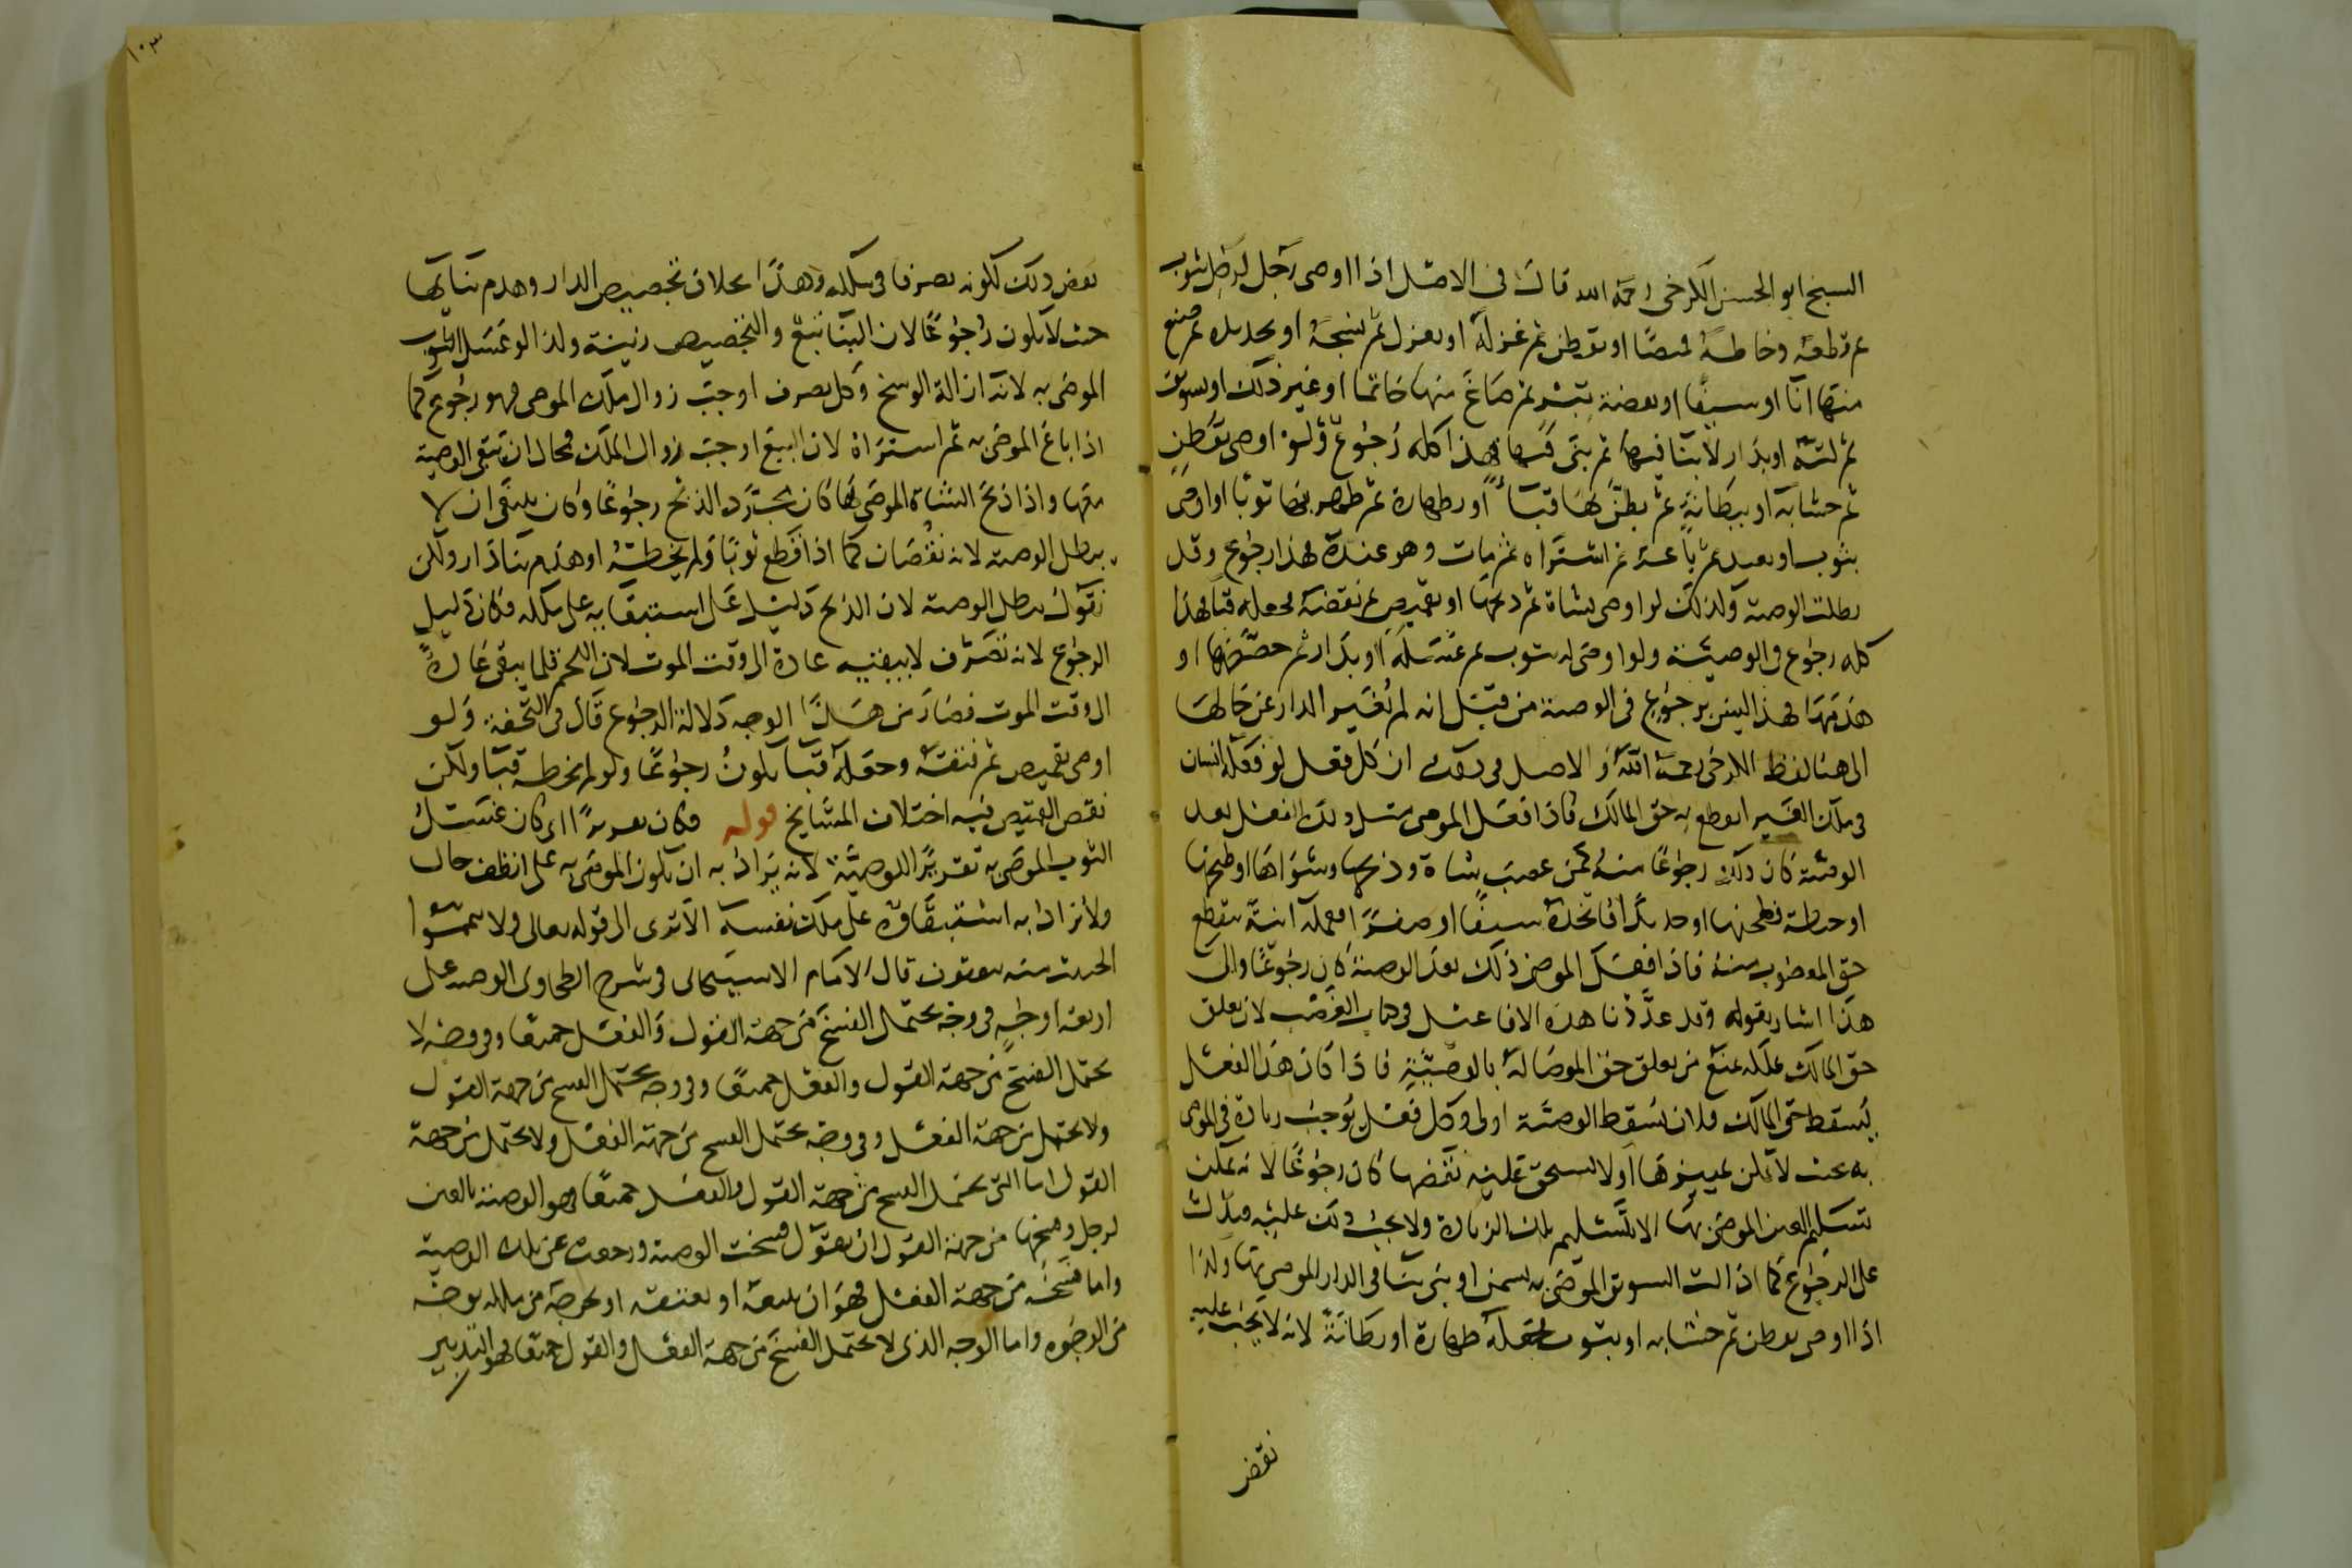 الشيخ ابو الحسن الكرخي رحمه الله قال في الاصل اذا اوصى رجل لرجل بثوب
ثم قطعه وخاطه قميصا او بقطن ثم غزله او بغزل ثم نسجه او بحديده ثم صنع
منها انآ او سيفا او بفضة تبر ثم صاغ منها خاتما او غير ذلك او بسويق
ثم لته او بدار لا بنا فيها ثم بنى فيها فهذا كله رجوع ولو اوصى بقطن
ثم حشا به او ببطانة ثم بطن بها قبآ او بظهارة ثم ظهر بها ثوبا او اوصى
بثوب او بعبد ثم باعه ثم اشتراه ثم مات وهو عنده فهذا رجوع وقد
بطلت الوصية وكذلك لو اوصى بشاة ثم ذبحها او بقميص ثم نقضه فجعله قبا فهذا
كله رجوع في الوصية ولو اوصى له بثوب ثم غسله او بدار ثم جصصها او
هدمها فهذا ليس برجوع في الوصية من قبل انه لم تغير الدار عن حالها
الى هنا لفظ الكرخي رحمه الله والاصل في ذلك ان كل فعل لو فعله انسان
في ملك الغير انقطع به حق المالك فاذا فعل الموصي مثل ذلك الفعل بعد
الوصية كان ذلك رجوعا منه كمن غصب شاة وذبحها وشواها او طبخها
او حنطة فطحنها او حديدا فاتخذه سيفا او صفرا فعمله انية ينقطع
حق المغصوب منه فاذا فعل الموصي ذلك بعد الوصية كان رجوعا والى
هذا اشار بقوله وقد عددنا هذه الافاعيل في كتاب الغصب لان تعلق
حق المالك بملكه امنع من تعلق حق الموصا له بالوصية فاذا كان هذا الفعل
يسقط حق المالك فلان يسقط الوصية اولى وكل فعل يوجب زيادة في الموصى
به بحيث لا يمكن تمييزها او لا يستحق عليه نقضها كان رجوعا لانه لا يمكن
تسليم العين الموصى بها الا بتسليم تلك الزيادة ولا يجب ذلك عليه فدلت
على الرجوع كما اذا لت السويق الموصى به بسمن او بنى بنا في الدار الموصى بها وكذا
اذا اوصى بقطن ثم حشا به او بثوب فجعله ظهارة او بطانة لانه لا يجب عليه
نقض
نقض ذلك لكونه تصرفا في ملكه وهذا بخلاف تجصيص الدار وهدم بنائها
حيث لا يكون رجوعا لان البنا تبع والتجصيص زينة ولذا لو غسل الثوب
الموصى به لانه ازالة الوسخ وكل تصرف اوجب زوال ملك الموصي فهو رجوع كما
اذا باع الموصى به ثم اشتراه لان البيع اوجب زوال الملك فمحال ان تبقى الوصية
معها واذا ذبح الشاة الموصى بها كان بمجرد الذبح رجوعا وكان ينبغي ان لا
يبطل الوصية لانه نقصان كما اذا قطع ثوبا ولم يخطه او هدم بنا دار ولكن
نقول يبطل الوصية لان الذبح دليل على استبقائه على ملكه فكان دليل
الرجوع لانه تصرف لا يبقيه عادة الى وقت الموت لان اللحم قلما يبقى عادة
الى وقت الموت فصار من هذا الوجه دلالة الرجوع قال في التحفة ولو
اوصى بقميص ثم نقضه وجعله قبا يكون رجوعا ولو لم يخطه قبا ولكن
نقض القميص فيه اختلاف المشايخ قوله فكان تقريرا اي كان غسل
الثوب الموصى به تقريرا للوصية لانه يراد به ان يكون الموصى به على انظف حال
ولا يراد به استبقاؤه على ملك نفسه الا ترى الى قوله تعالى ولا تيمموا
الخبيث منه تنفقون قال الامام الاسبيجابي في شرح الطحاوي الوصية على
اربعة اوجه في وجه يحتمل الفسخ من جهة القول والفعل جميعا وفي وجه لا
يحتمل الفسخ من جهة القول والفعل جميعا وفي وجه يحتمل الفسخ من جهة القول
ولا يحتمل من جهة الفعل وفي وجه يحتمل الفسخ من جهة الفعل ولا يحتمل من جهة
القول اما التي يحتمل الفسخ من جهة القول والفعل جميعا فهو الوصية بالعين
لرجل وفسخها من جهة القول ان يقول فسخت الوصية ورجعت عن تلك الوصية
واما فسخه من جهة الفعل فهو ان يبيعه او يعتقه او يخرجه من ملكه بوجه
من الوجوه واما الوجه الذي لا يحتمل الفسخ من جهة الفعل والقول جميعا فهو التدبير
١٠٣